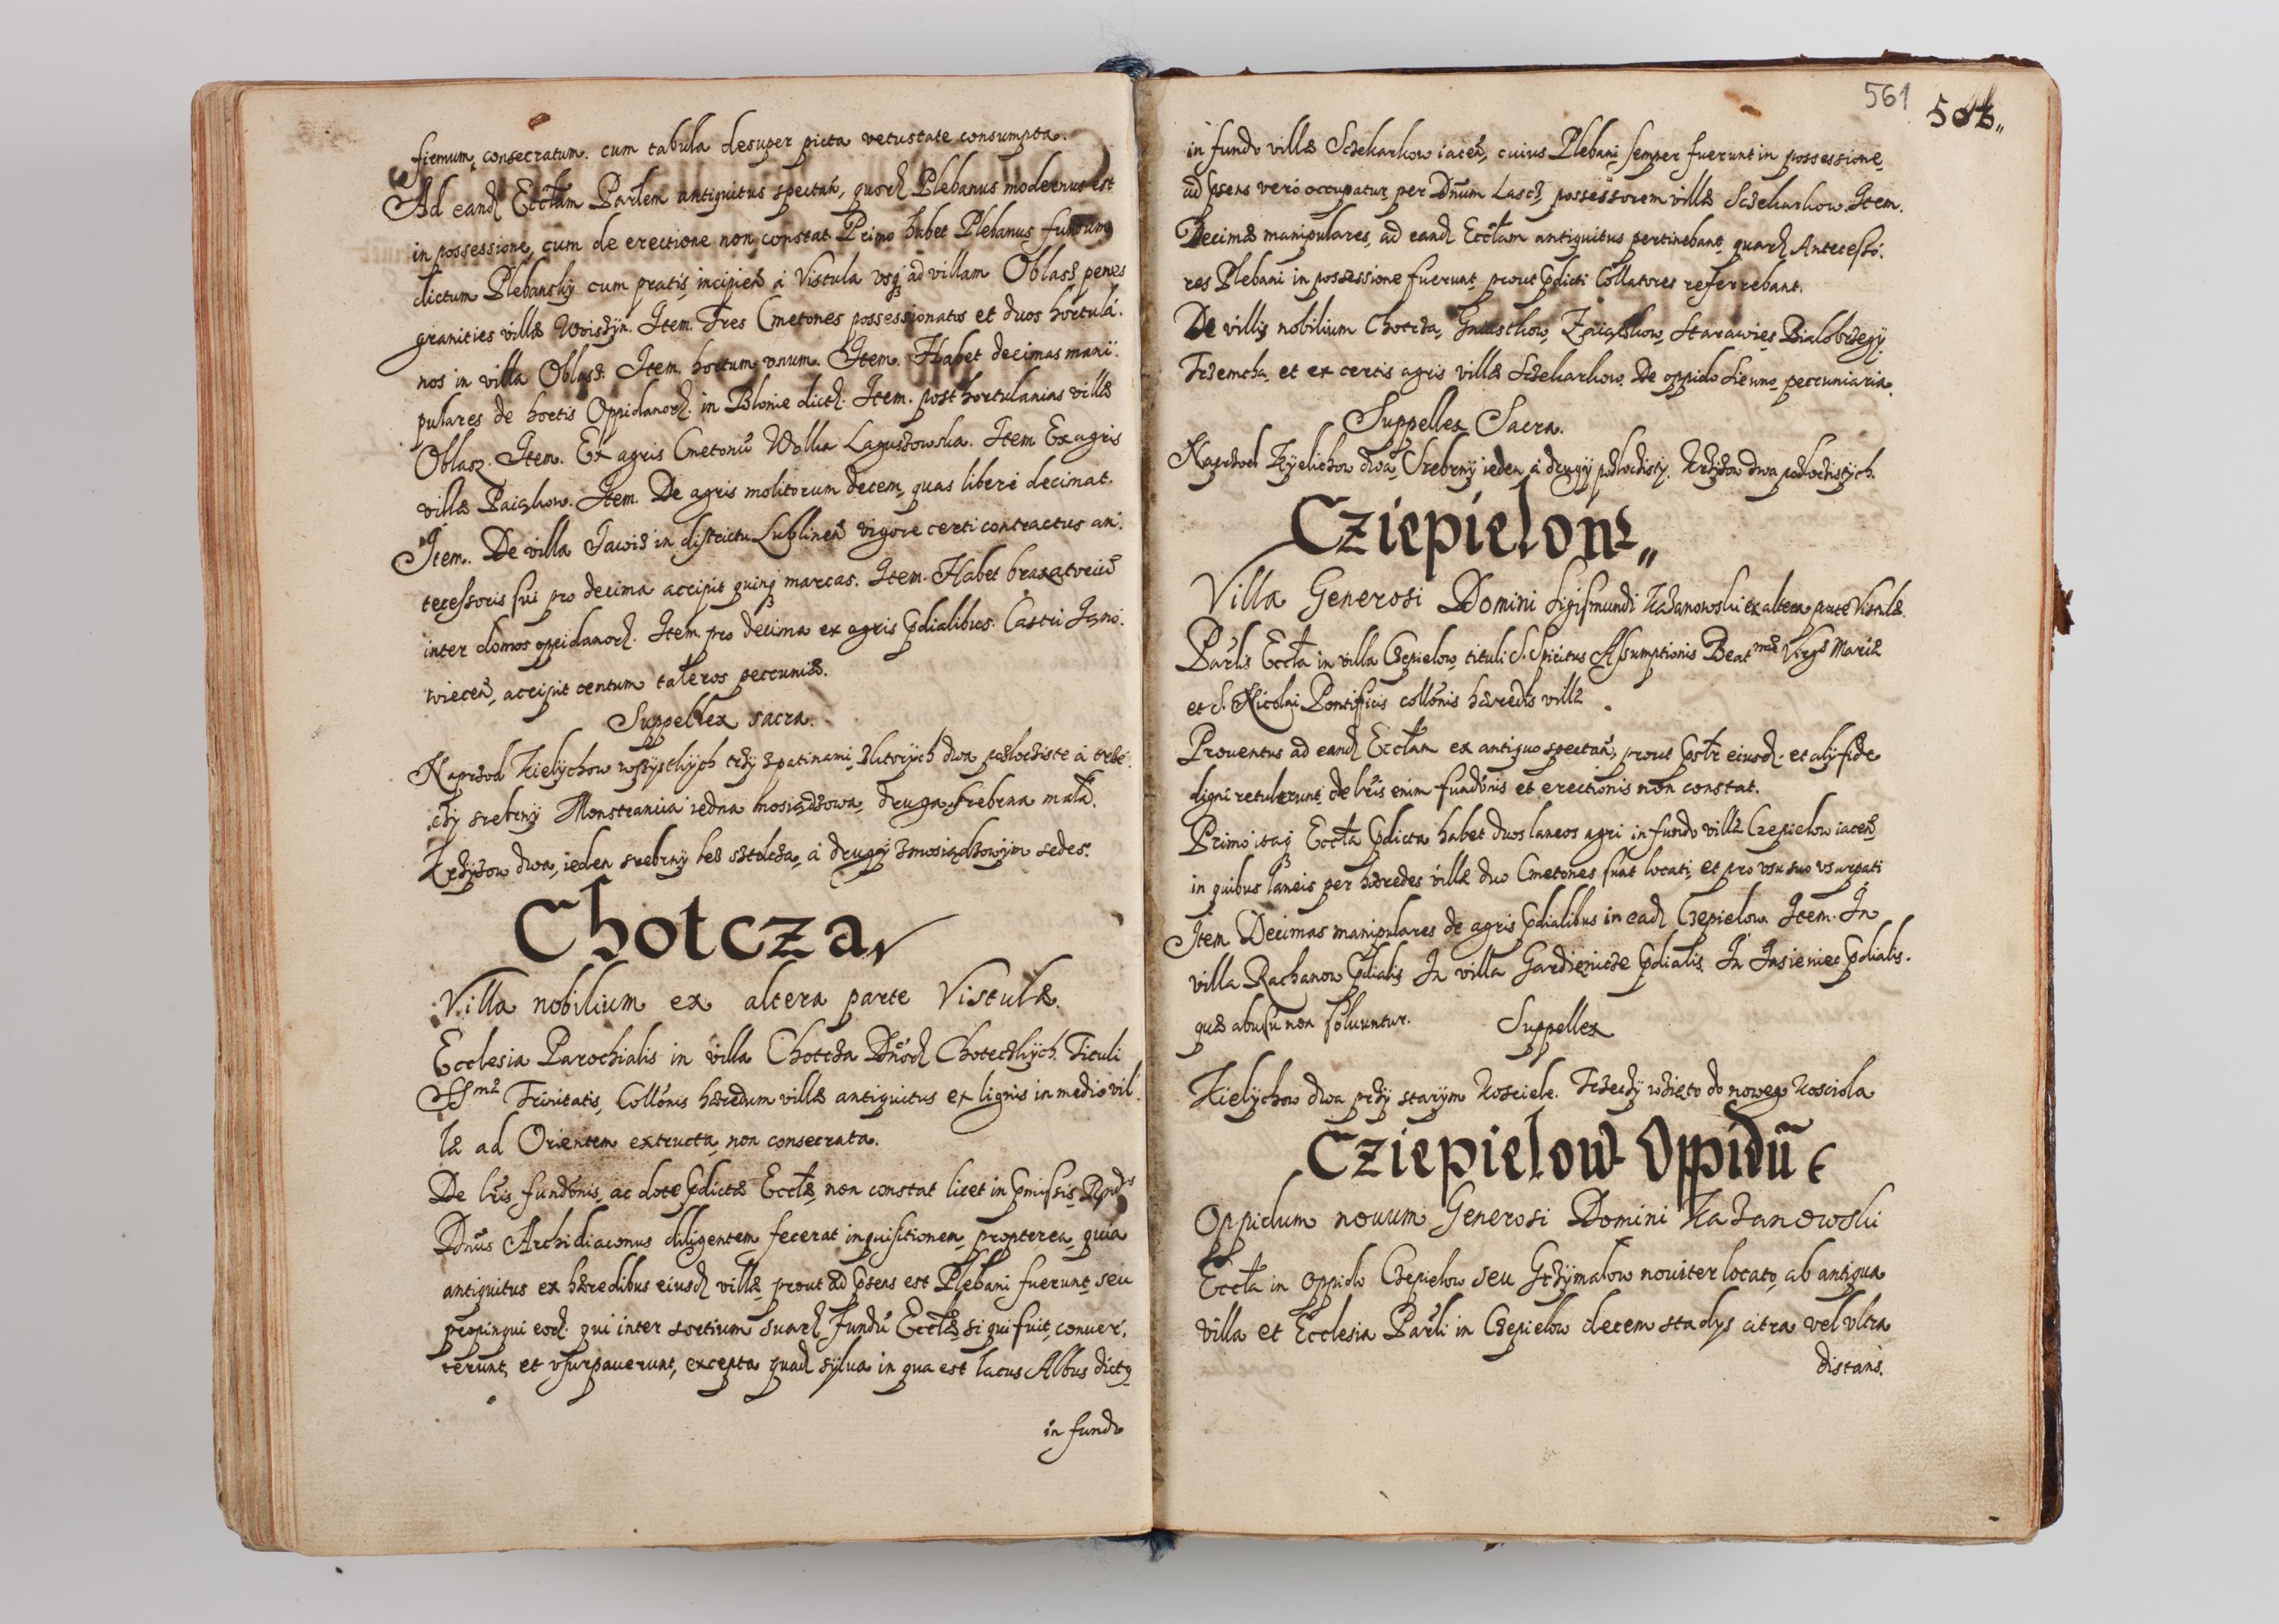 firmum, consecratum. cum tabula desuper picta vetustate consumpta.
Ad eand Eccłam Parlem antiquitus spectañ, quorȝ Plebanus modernus est
in possessione, cum de erectione non constat. Primo habet Plebanus fundum
dictum Plebansky cum pratis, incipieñ á Vistula vsq ad villam Oblasz penes
granities villæ Woiszÿn. Item. Tres Cmetones possessionatos et duos hortulá:
nos in villa Oblasz. Item. hortum vnum. Item. Habet decimas mani:
pulares de hortis Oppidanorȝ. in Blonie dictȝ. Item. post hortulanias villæ
Oblasz. Item. Ex agris Cmetonū Wolia Laguszowska. Item Ex agris
villæ Paiąkow. Item. De agris molitorum decem, quas liberè decimat.
Item. De villa Jawiz in districtu Lublineñ vigore certi contractus an:
tecessoris sui pro decima accipit quinq marcas. Item. Habet braxatoriū
inter domos oppidanorȝ. Item pro decima ex agris pdialibus. Castri Jano:
wieceñ, accipit centum taleros peccuniæ.
Suppellex sacra.
Naprzod Kielÿchow wszÿstkÿch trzÿ zpatinami, zktorÿch dwa pozłociste á trze:
ci srebrnÿ Monstranciia iedna mosiądzowa, druga srebrna mała.
Krzÿżow dwa, ieden srebrnÿ bez sztulcza, á drugÿ zmosiądzowÿm sedes.
Chotcza
Villa nobilium ex altera parte Vistulæ.
Ecclesia Parochialis in villa Chotcza Dñorȝ Choteczkÿch. Tituli
SSmæ Trinitatis, Collōnis hæredum villæ antiquitus ex lignis in medio vil:
læ ad Orientem extructa, non consecrata.
De lr̃is, fundōnis, ac dote pdictæ Ecclæ, non constat licet in pmissis Rnds
Dñus Archidiaconus diligentem, fecerat inquisitionem, propterea, quia
antiquitus ex hæredibus eiusd villæ, prout ad psens est Plebani fuerunt, seu
propinqui eorȝ. qui inter sortium suarȝ, Fundū Ecclæ, si qui fuit, conuer:
terunt, et vsurpauerunt, excepta quad sylua in qua est lacus Albus dictq
in fundo
561
in fundo villæ Sczekarkow iaceñ, cuius Plebani semper fuerunt in possessione,
ad psens vero occupatur, per Dñum Lascz, possessorem villæ Sczekarkow. Item.
Decimæ manipulares, ad eand Eccłam antiquitus pertinebant, quarȝ Antecesso:
res Plebani in possessione fuerunt, prout pdicti Collatores referrebant.
De villis nobilium Chotcza, Gniastkow, Starawies, Bialobrzegÿ
Trzemcha, et ex certis agris villæ Sczekarkow. De oppido Sienno, peccuniaria.
Suppellex Sacra.
Naprzod Kÿelichow dwa, Srebrnÿ ieden, á drugÿ pozłocistÿ. Krzÿżow dwa pozłocistÿch.
Cziepielow
Villa Generosi Domini Sigismundi Kazanowski ex altera parte Vistulæ.
Parlis Eccła in villa Czepielow, tituli S. Spiritus Assumptionis Beatmæ Virgs Mariæ
et S. Nicolai Pontificis collōnis hæredis villæ
Prouentus ad eand Eccłam ex antiquo spectañ, prout eiusd. et alÿ fide
digni retulerunt, de lr̃is enim fundōnis et erectionis non constat.
Primo itaq Eccła pdicta habet duos laneos agri in fundo villæ Czepielow iaceñ
in quibus laneis per hæredes villæ duo Cmetones sunt locati, et pro vsu suo vsurpati
Item Decimas manipulares de agris pdialibus in ead Czepielow. Item. In
villa Rachanow pdialis In villa Gardzienicze pdialis. In Jasieniec pdialis.
quæ abusu non soluuntur. Suppellex
Kielÿchow dwa przÿ starÿm Kosciele. Trzeci wzięto do noweg Kosciola
Cziepielow Oppidū
Oppidum nouum Generosi Domini Kazanowski
Eccła in Oppido Czepielow seu Grzÿmalow nouiter locato, ab antiqua
villa et Ecclesia Parli in Czepielow decem stadÿs citra vel vltra
distans.